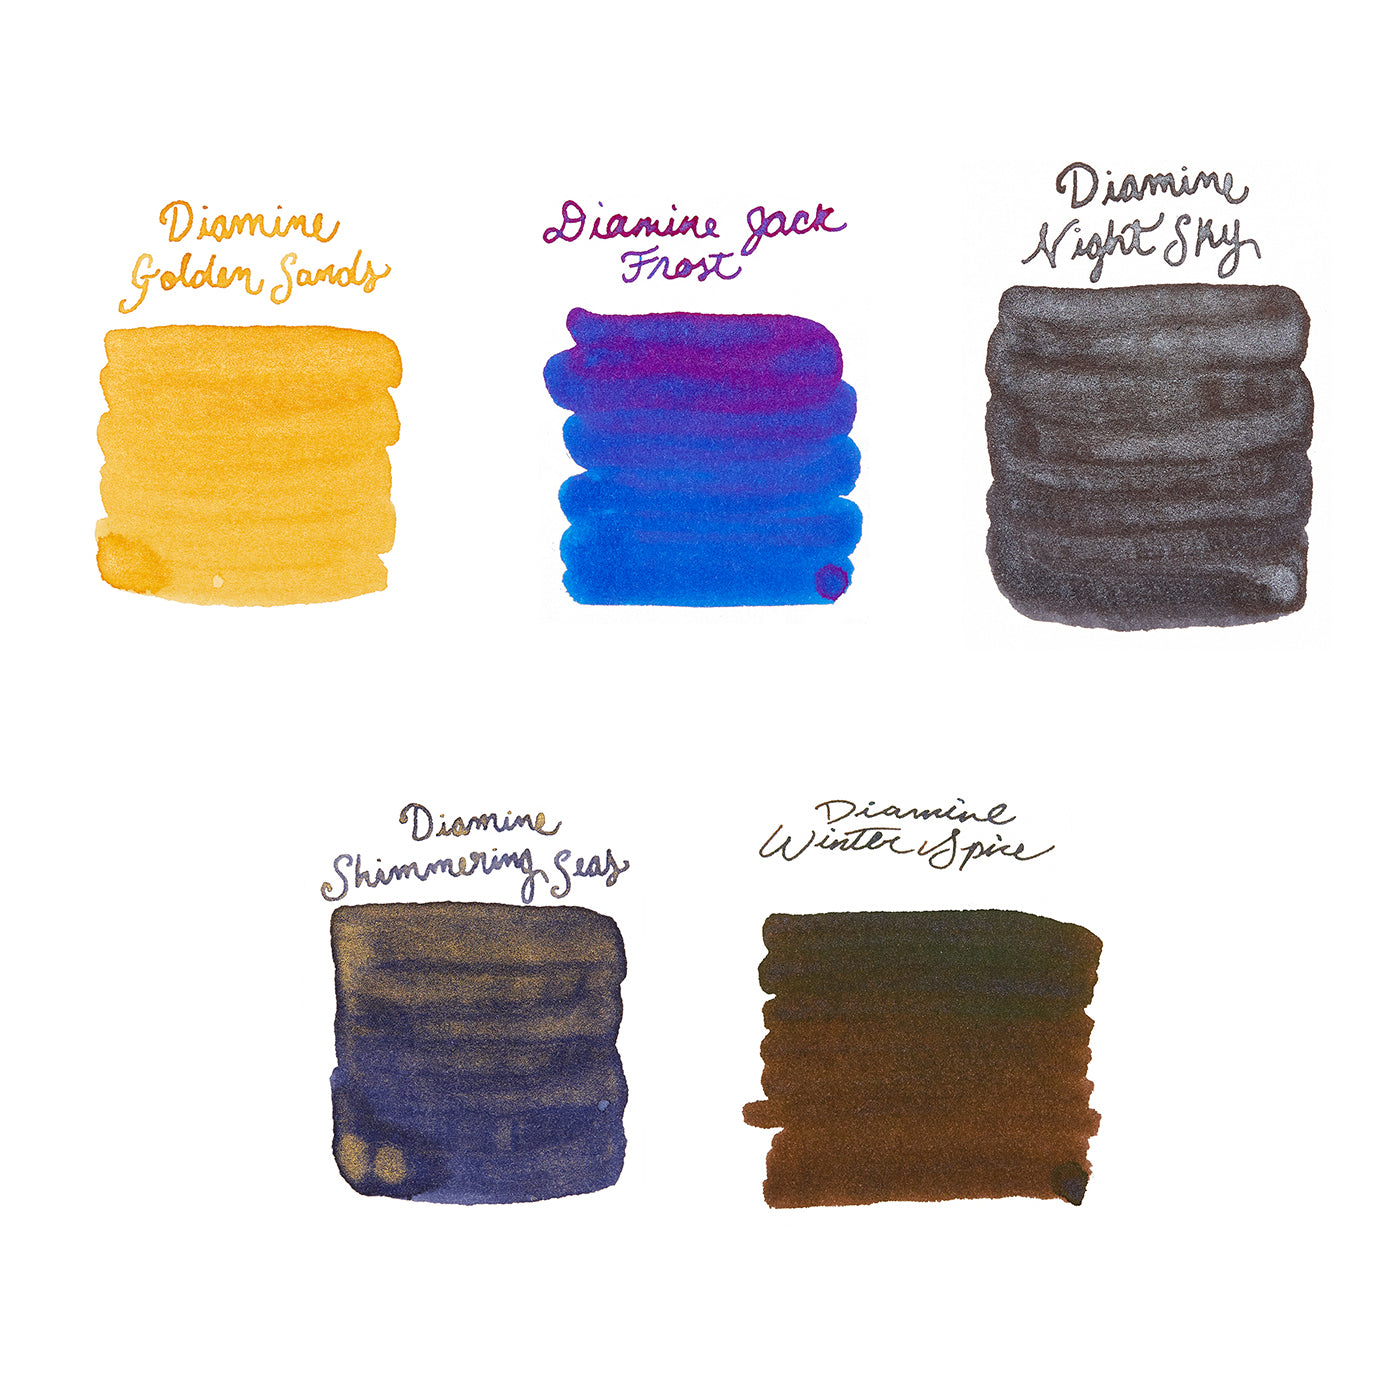 Diamine
Golden Sands
Diamine Jack
Frost
Diamine
Night Sky
Diamine
Shimmering Seas
Diamine
Winter Spice